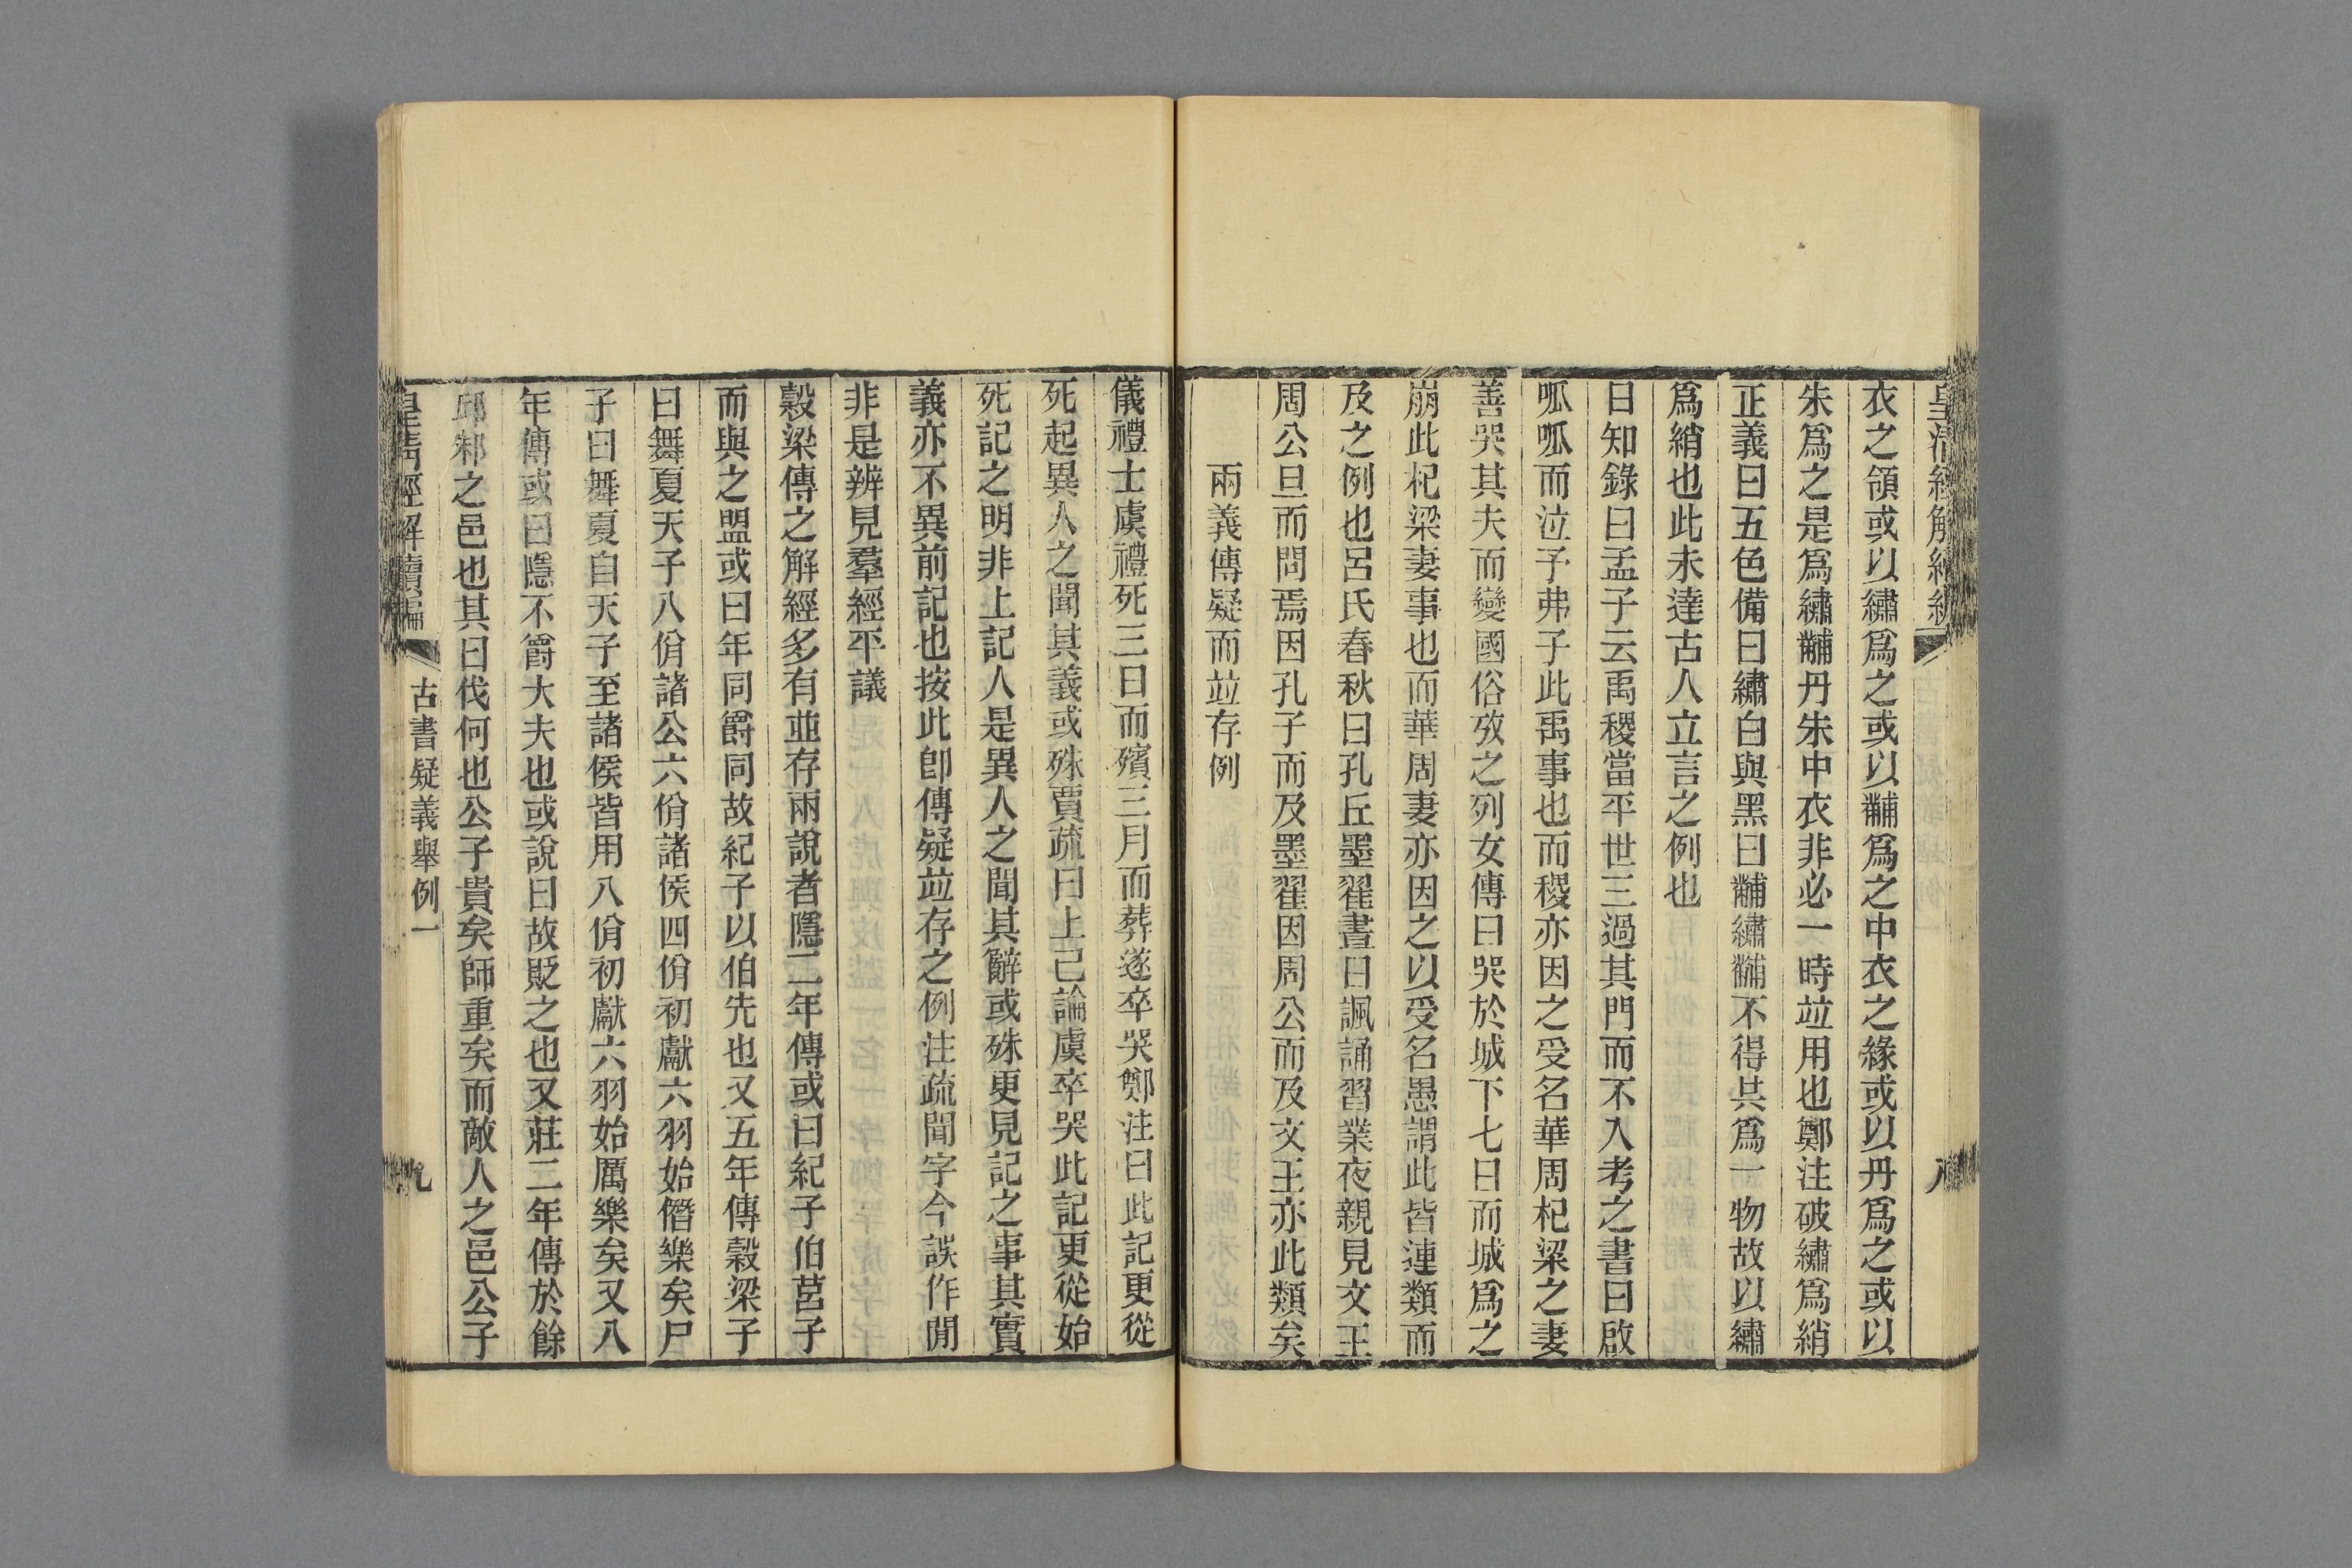 皇清經解續編
八
衣之領或以繡爲之或以黼爲之中衣之緣或以丹爲之或以
朱爲之是爲繡黼丹朱中衣非必一時竝用也鄭注破繡爲綃
正義曰五色備曰繡白與黑曰黼繡黼不得共爲一物故以繡
爲綃也此未達古人立言之例也
日知錄曰孟子云禹稷當平世三過其門而不入考之書曰啟
呱呱而泣予弗子此禹事也而稷亦因之受名華周杞梁之妻
善哭其夫而變國俗攷之列女傳曰哭於城下七日而城爲之
崩此杞梁妻事也而華周妻亦因之以受名愚謂此皆連類而
及之例也呂氏春秋曰孔丘墨翟晝日諷誦習業夜親見文王
周公旦而問焉因孔子而及墨翟因周公而及文王亦此類矣
兩義傳疑而竝存例
儀禮士虞禮死三日而殯三月而葬遂卒哭鄭注曰此記更從
死起異人之聞其義或殊賈疏曰上已論虞卒哭此記更從始
死記之明非上記人是異人之聞其辭或殊更見記之事其實
義亦不異前記也按此卽傳疑竝存之例注疏聞字今誤作閒
非是辨見羣經平議
穀梁傳之解經多有並存兩說者隱二年傳或曰紀子伯莒子
而與之盟或曰年同爵同故紀子以伯先也又五年傳穀梁子
曰舞夏天子八佾諸公六佾諸侯四佾初獻六羽始僭樂矣尸
子曰舞夏自天子至諸侯皆用八佾初獻六羽始厲樂矣又八
年傳或曰隱不爵大夫也或說曰故貶之也又莊二年傳於餘
邱邾之邑也其曰伐何也公子貴矣師重矣而敵人之邑公子
皇清經解續編
古書疑義舉例一
九